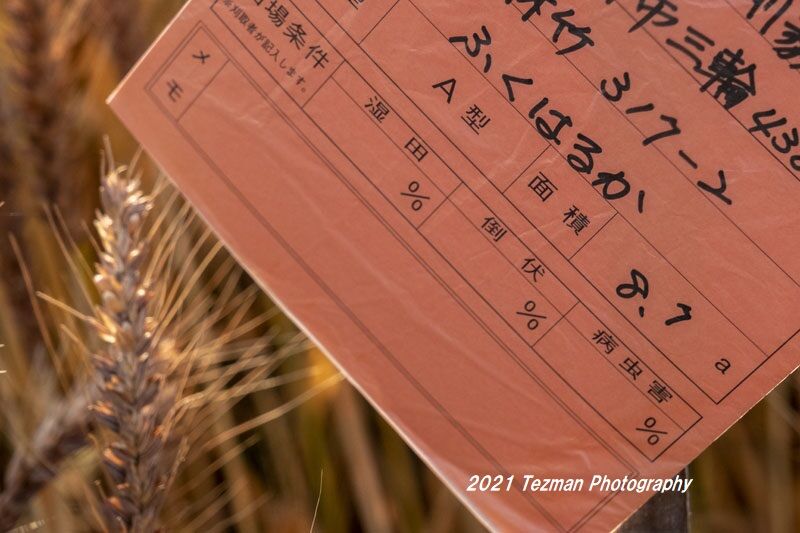 市三輪 43
林竹 317-2
ふくはるか
A型
面積
8.7 a
圃場条件
刈取者が記入します。
湿田
%
倒伏
%
病虫害
%
メモ
2021 Tezman Photography